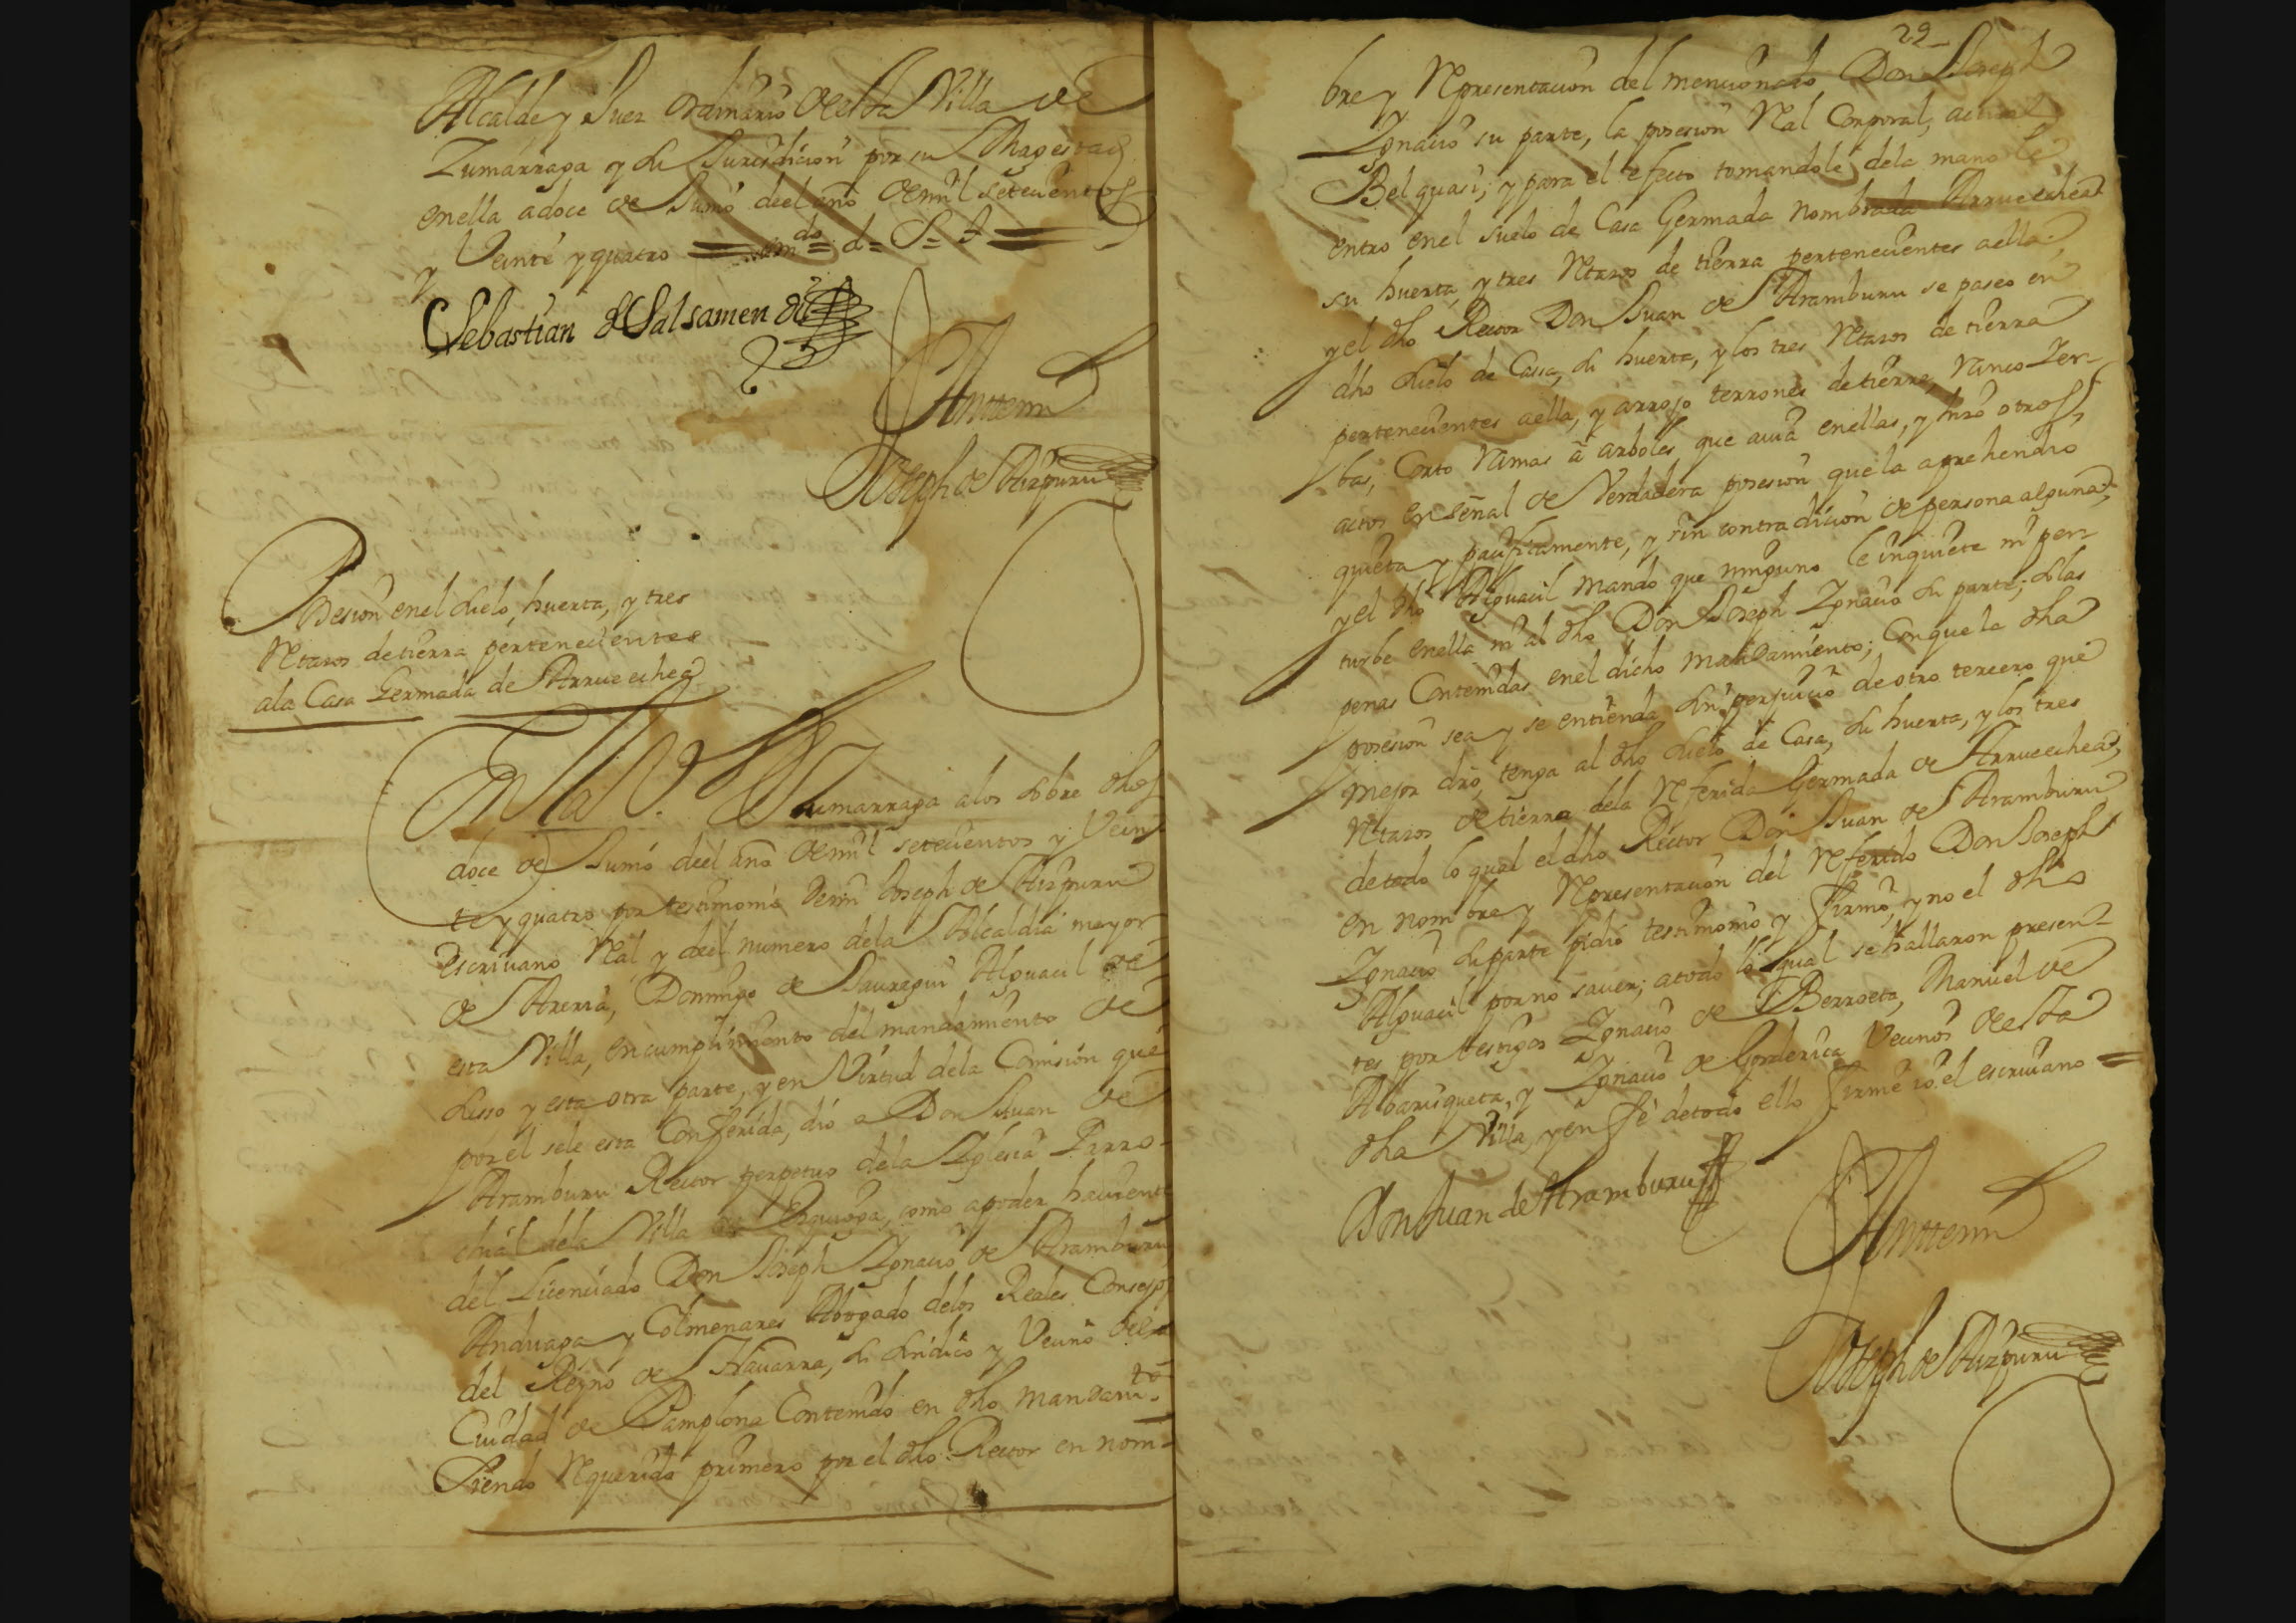 Alcalde y Juez ordinario de esta Villa de
Zumarraga y su Jurisdicion por su Magestad
enella a doce de Junio deel año de mill setecientos
y Veinte y quatro
Sebastian de Salsamendi
Antte mi
Joseph de Aizpuru
Posesion enel suelo, huerta, y tres
Retazos de tierra pertenecientes
ala Casa Germada de Arrueechea
En la V.ª de Zumarraga alos sobre dhos
doce de Junio deel año de mill setecientos y Vein
te y quatro por testimonio de mi Joseph de Aizpuru
escrivano Real y deel numero dela Alcaldia mayor
de Areria, Domingo de Sauregui Alguacil de
esta Villa, en cumplimiento del mandamiento de
suso y esta otra parte, y en Virtud dela Comision que
por el sele esta Conferida, dió a Don Juan de
Aramburu Rector perpetuo dela Iglesia Parro-
chial dela Villa de Ezquioga, como a poder haviente
del Licenciado Don Joseph Ignacio de Aramburu
Anduaga y Colmenares Abogado delos Reales Consejos
del Reyno de Navarra, su sindico y Vecino dela
Ciudad de Pamplona Contenido en dho mandamto.
Siendo Requerido primero por el dho Rector en nom-
29
bre y Representacion del mencionado Don Joseph
Ignacio su parte, la posesion Real Corporal, actual
Bel quasi; y para el efecto tomandole dela mano le
entro enel suelo de Casa Germada nombrada Arrueechea
su huerta, y tres Retazos de tierra pertenecientes aella;
y el dho Rector Don Juan de Aramburu se paseo en
dho suelo de Cassa, su huerta, y los tres Retazos de tierra
pertenecientes aella, y arrojo terrones de tierra, ranco Zer-
bas, Corto ramas á arboles, que avia enellas, y hizo otros
actos en señal de Verdadera posesion que la aprehendio
quieta y pacificamente, y sin contradicion de persona alguna;
y el dho Alguacil mando que ninguno le inquiete ni per-
turbe enella ni al dho Don Joseph Ignacio su parte; so las
penas Contenidas enel dicho mandamiento; Conque la dha
posesion sea y se entienda sin perjuicio de otro tercero que
mejor dro tenga al dho suelo de Casa, su huerta, y los tres
Retazos de tierra dela Referida Germada de Arrueechea,
de todo lo qual el dho Rector Don Juan de Aramburu
en nombre y Representacion del Referido Don Joseph
Ignacio su parte pidió testimonio y firmó, y no el dho
Alguacil por no saver; a todo lo qual se hallaron presen-
tes por testigos Ignacio de Berroeta, Manuel de
Albarisqueta, y Ignacio de Vecinos de esta
dha Villa, y en fé de todo ello firmé Yo el escrivano =
Don Juan de Aramburu
Antte mi
Joseph de Aizpuru